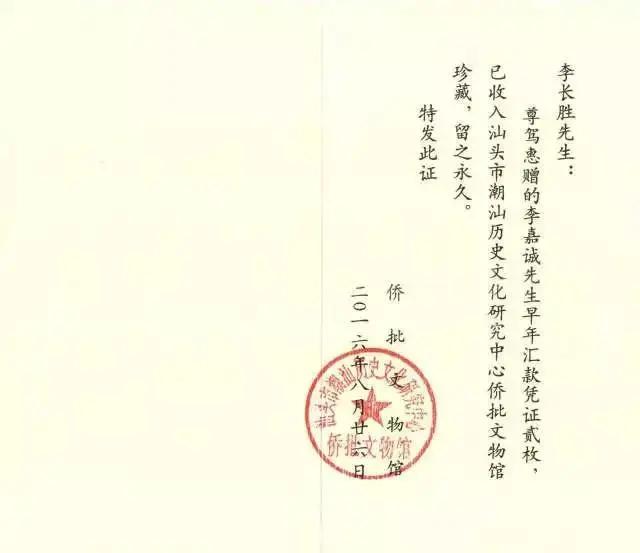 李长胜先生：
尊驾惠赠的李嘉诚先生早年汇款凭证贰枚，
已收入汕头市潮汕历史文化研究中心侨批文物馆
珍藏，留之永久。
特发此证
侨批文物馆
二〇一六年八月廿六日
汕头市潮汕历史文化研究中心
侨批文物馆